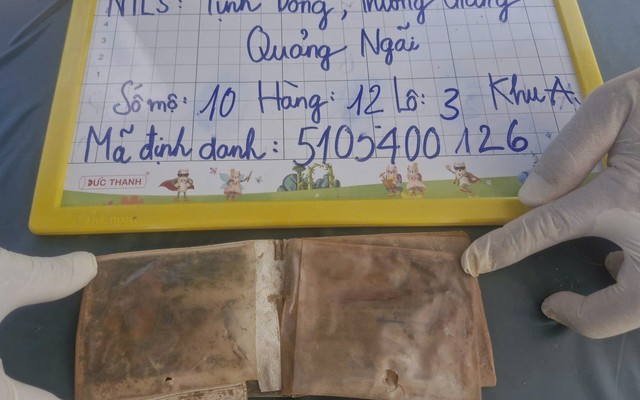 NTLS: Tịnh Đông, Trường Giang
Quảng Ngãi
Số mộ: 10 Hàng: 12 Lô: 3 Khu A
Mã định danh: 5105400126
ĐỨC THANH